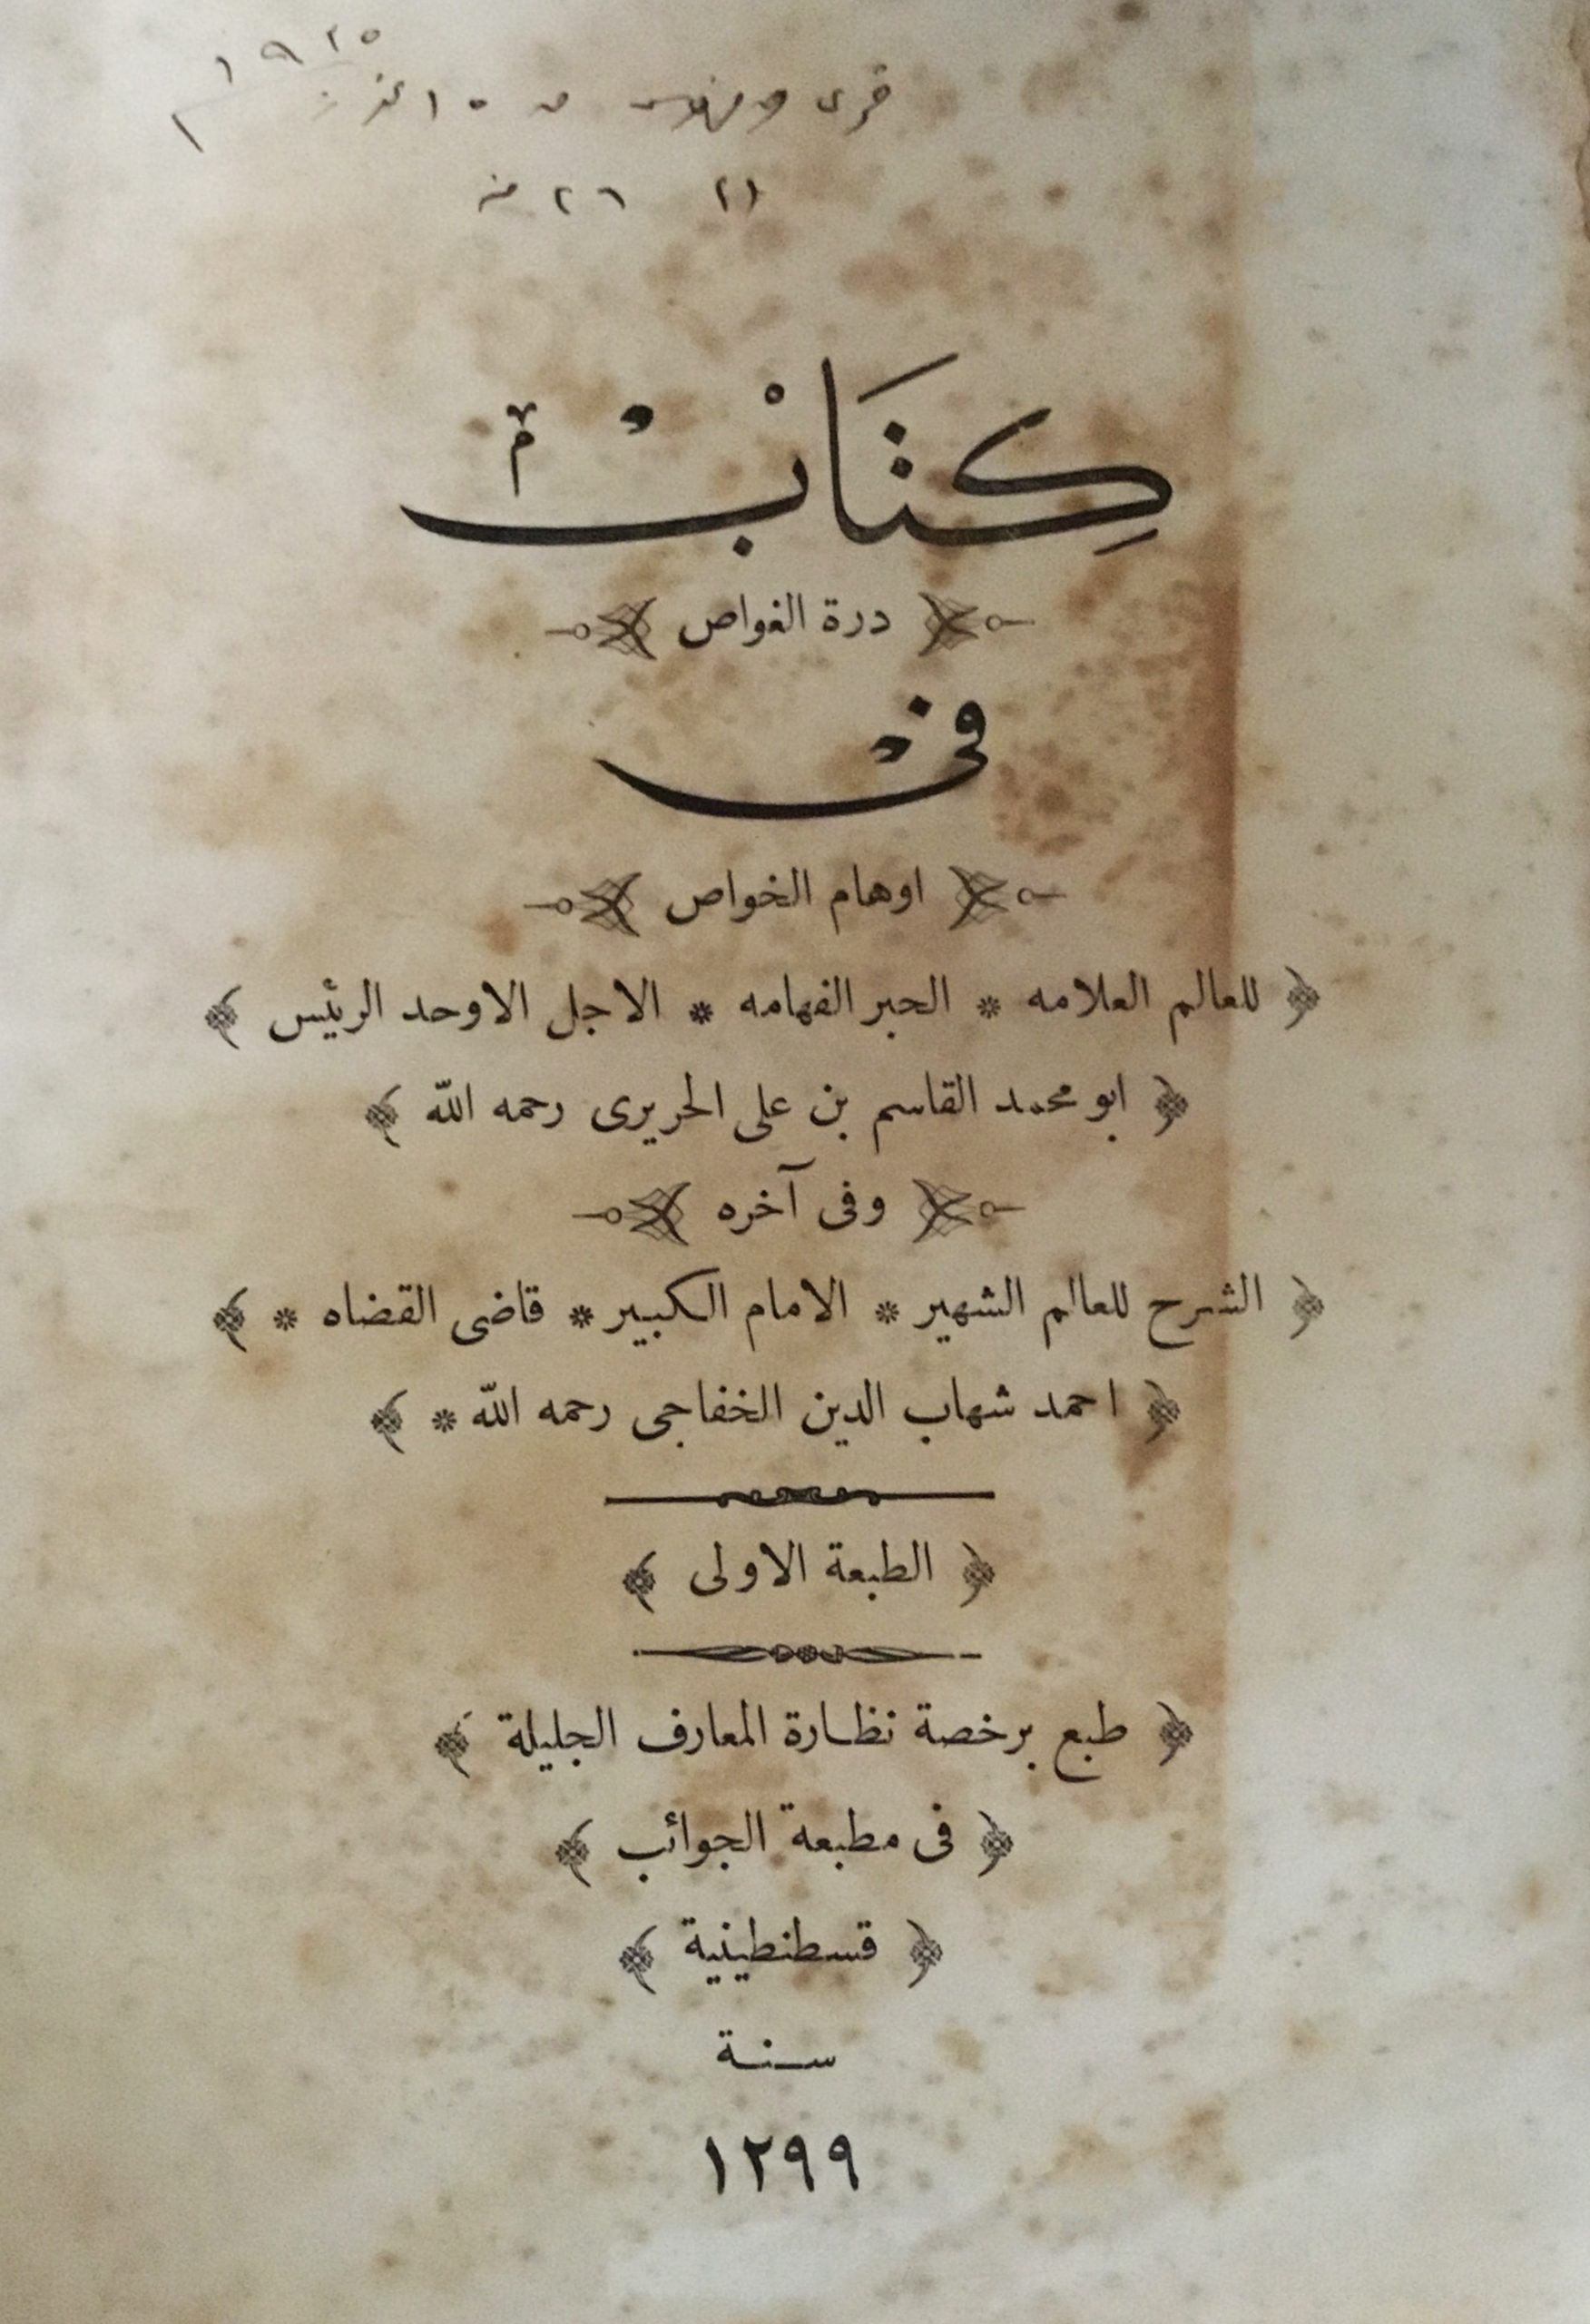 ١٩٢٥
كتاب
درة الغواص
فى
اوهام الخواص
للعالم العلامه * الحبر الفهامه * الاجل الاوحد الرئيس
ابو محمد القاسم بن على الحريرى رحمه الله
وفى آخره
الشرح للعالم الشهير * الامام الكبير * قاضى القضاه *
احمد شهاب الدين الخفاجى رحمه الله *
الطبعة الاولى
طبع برخصة نظارة المعارف الجليلة
فى مطبعة الجوائب
قسطنطينية
سنة
١٢٩٩